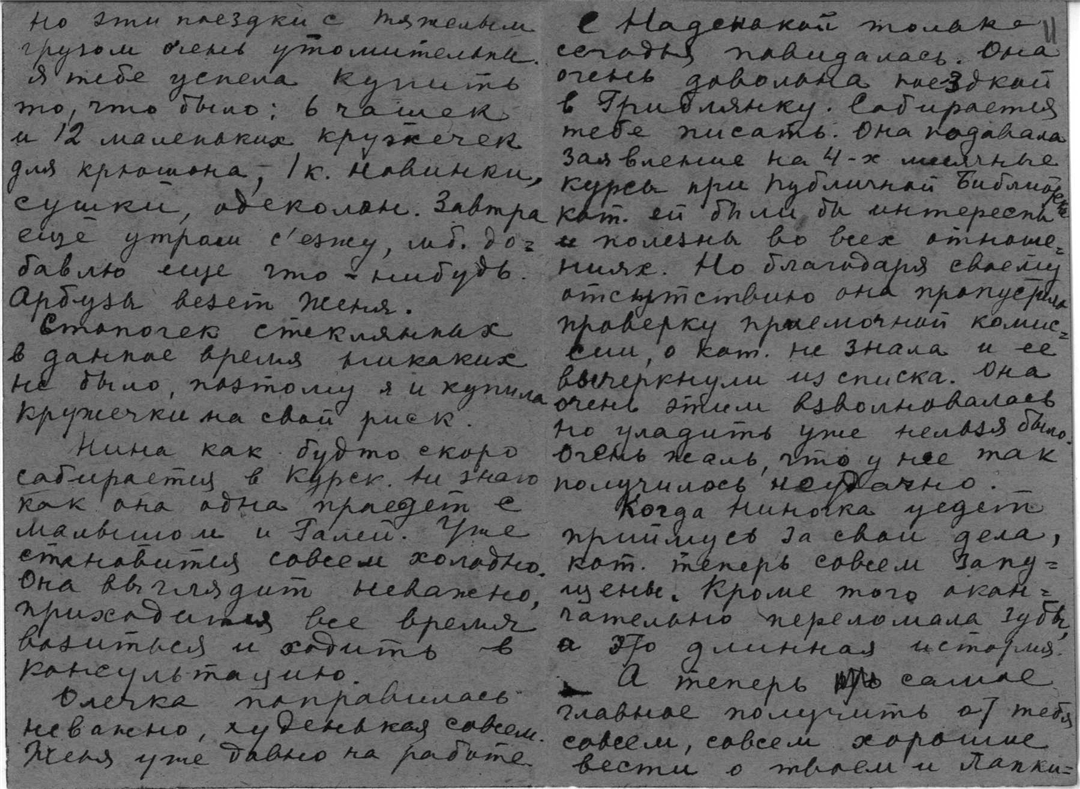 но эти поездки с тяжелым
грузом очень утомительны.
Я тебе успела купить
то, что было: 6 чашек
и 12 маленьких кружечек
для крюшона, 1 к. Новинки,
сушки, одеколон. Завтра
ещё утром с'езжу, мб. до=
бавлю еще что-нибудь.
Арбузы везет Женя.
Стопочек стеклянных
в данное время никаких
не было, поэтому я и купила
кружечки на свой риск.
Нина как будто скоро
собирается в Курск. Не знаю
как она одна проедет с
малышом и Галей. Уже
становится совсем холодно.
Она выглядит неважно,
приходится все время
возиться и ходить в
консультацию.
Олечка поправилась
неважно, худенькая совсем.
Женя уже давно на работе
11
С Наденькой только
сегодня повидалась. Она
очень довольна поездкой
в Грибляпку. Собирается
тебе писать. Она подавала
заявление на 4-х месячные
курсы при Публичной Библиотеке
кот. ей были бы интересны
и полезны во всех отноше=
ниях. Но благодаря своему
отсутствию она пропустила
проверку приемочной комис=
сии, о кот. не знала и ее
вычеркнули из списка. Она
очень этим взволновалась
но уладить уже нельзя было.
Очень жаль, что у нее так
получилось неудачно.
Когда Ниночка уедет
приймусь за свои дела,
кот. теперь совсем запу=
щены. Кроме того окон=
чательно переломала зубы,
а это длинная история.
А теперь самое
главное получить от тебя
совсем, совсем хорошие
вести о твоем и Лапки=